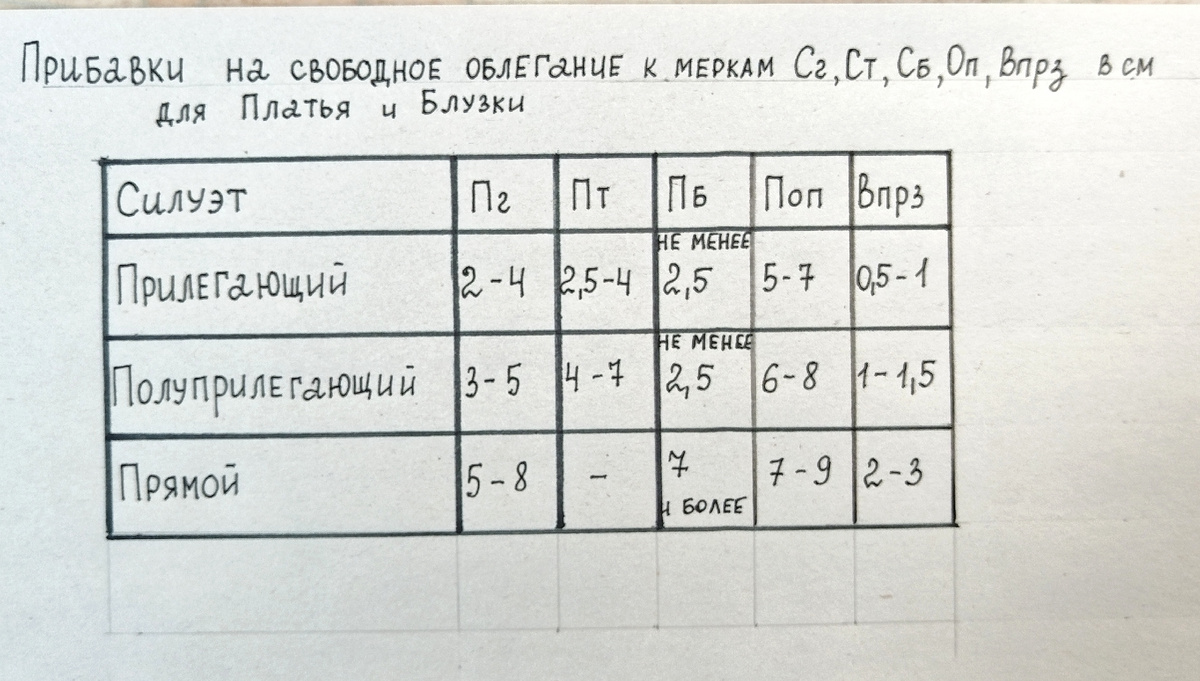 Прибавки на свободное облегание к меркам Сг, Ст, Сб, Оп, Впрз в см
для Платья и Блузки
Силуэт Пг Пт Пб Поп Впрз
не менее
Прилегающий 2-4 2,5-4 2,5 5-7 0,5-1
не менее
Полуприлегающий 3-5 4-7 2,5 6-8 1-1,5
Прямой 5-8 - 7 7-9 2-3
и более